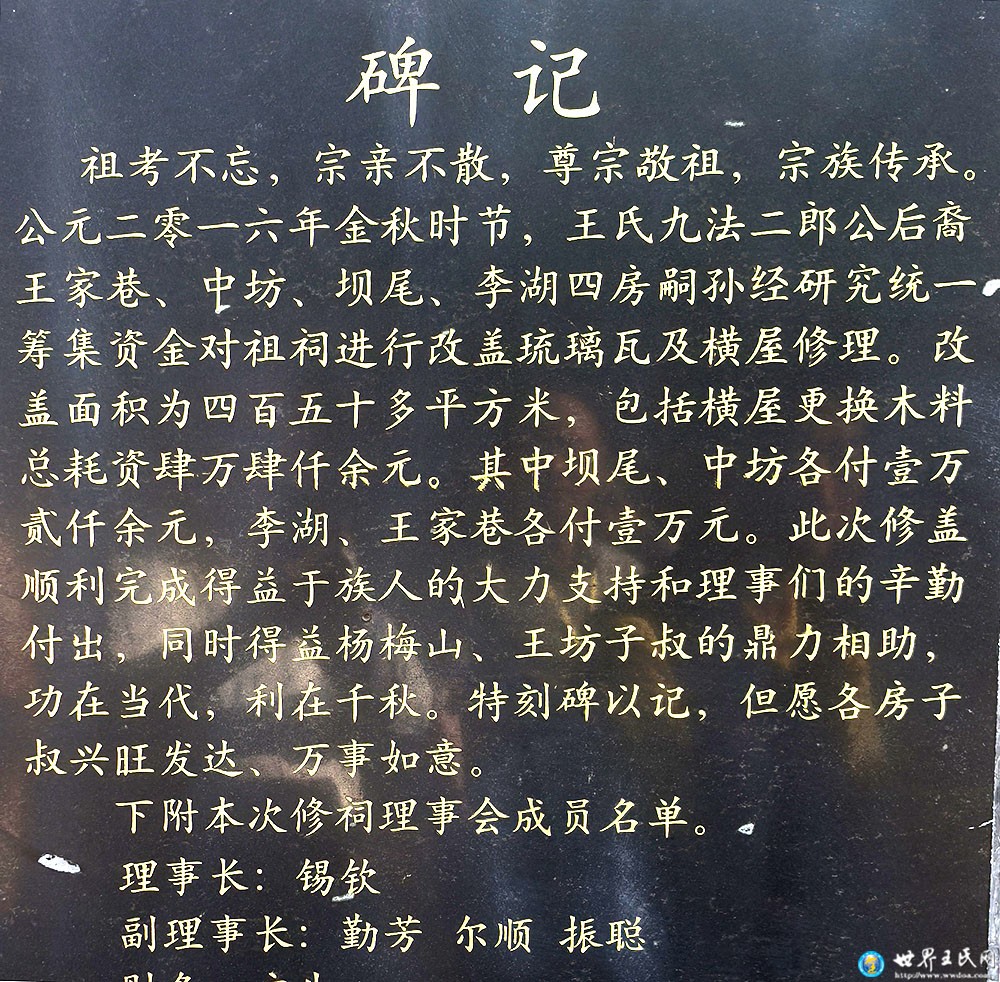 碑 记
祖考不忘，宗亲不散，尊宗敬祖，宗族传承。
公元二零一六年金秋时节，王氏九法二郎公后裔
王家巷、中坊、坝尾、李湖四房嗣孙经研究统一
筹集资金对祖祠进行改盖琉璃瓦及横屋修理。改
盖面积为四百五十多平方米，包括横屋更换木料
总耗资肆万肆仟余元。其中坝尾、中坊各付壹万
贰仟余元，李湖、王家巷各付壹万元。此次修盖
顺利完成得益于族人的大力支持和理事们的辛勤
付出，同时得益杨梅山、王坊子叔的鼎力相助，
功在当代，利在千秋。特刻碑以记，但愿各房子
叔兴旺发达、万事如意。
下附本次修祠理事会成员名单。
理事长：锡钦
副理事长：勤芳 尔顺 振聪
世界王氏网
http://www.wwdoa.com